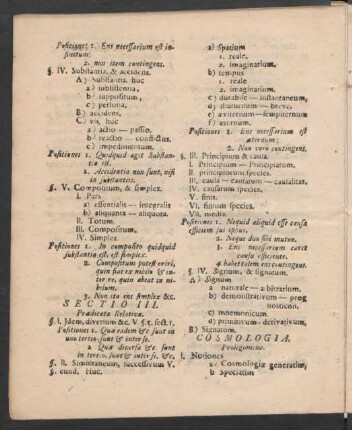 Positiones 1. Ens necessarium est in-
finitum:
2. non item contingens.
§. IV. Substantia, & accidens.
A) Substantia, huc
a) subsistentia,
b) suppositum,
c) persona.
B) accidens.
C) vis, huc
a) actio — passio.
b) reactio — conflictus.
c) impedimentum.
Positiones 1. Quidquid agit Substan-
tia est.
2. Accidentia non sunt, nisi
in substantiis.
§. V. Compositum, & simplex.
I. Pars
a) essentialis — integralis
b) aliquanta — aliquota.
II. Totum.
III. Compositum,
IV. Simplex
Positiones 1. In composito quidquid
substantia est, est simplex.
2. Compositum potest oriri,
quin fiat ex nihilo & in-
terire, quin abeat in ni-
hilum.
3. Non ita ens simplex &c.
SECTIO III.
Prædicata Relativa.
§. I. Idem, diversum &c. V. §. 5. sect. 1.
Positiones 1. Quæ eadem &c sunt in
uno tertio sunt & inter se.
2. Quæ diversa &c. sunt
in tertio, sunt & inter se, &c.
§. II. Simultaneum, successivum V.
§. eund. Huc.
a) Spatium
1. reale.
2. imaginarium.
b) tempus
1. reale
2. imaginarium.
c) durabile — instantaneum,
d) diuturnum — breve.
e) æviternum — sempiternum
f) æternum.
Positiones 1. Ens necessarium est
æternum;
2. Non vero contingens.
§. III. Principium & causa.
I. Principium — Principiatum.
II. principiorum species.
III. causa — causatum — causalitas.
IV. causarum species.
V. finis.
VI. finium species.
VII. media.
Positiones 1. Nequid aliquid esse causa
efficiens sui ipsius.
2. Neque duo sibi mutuo.
3. Ens necessarium caret
causa efficiente.
4. habet eam ens contingens.
§. IV. Signum, & signatum.
A) Signum
a) naturale — arbitrarium.
b) demonstrativum — prog
nosticon.
c) mnemonicum.
d) primitivum - derivativum,
B) Signatum.
COSMOLOGIA.
Prolegomena.
I. Notiones
a) Cosmologiæ generatim,
b) Speciatim